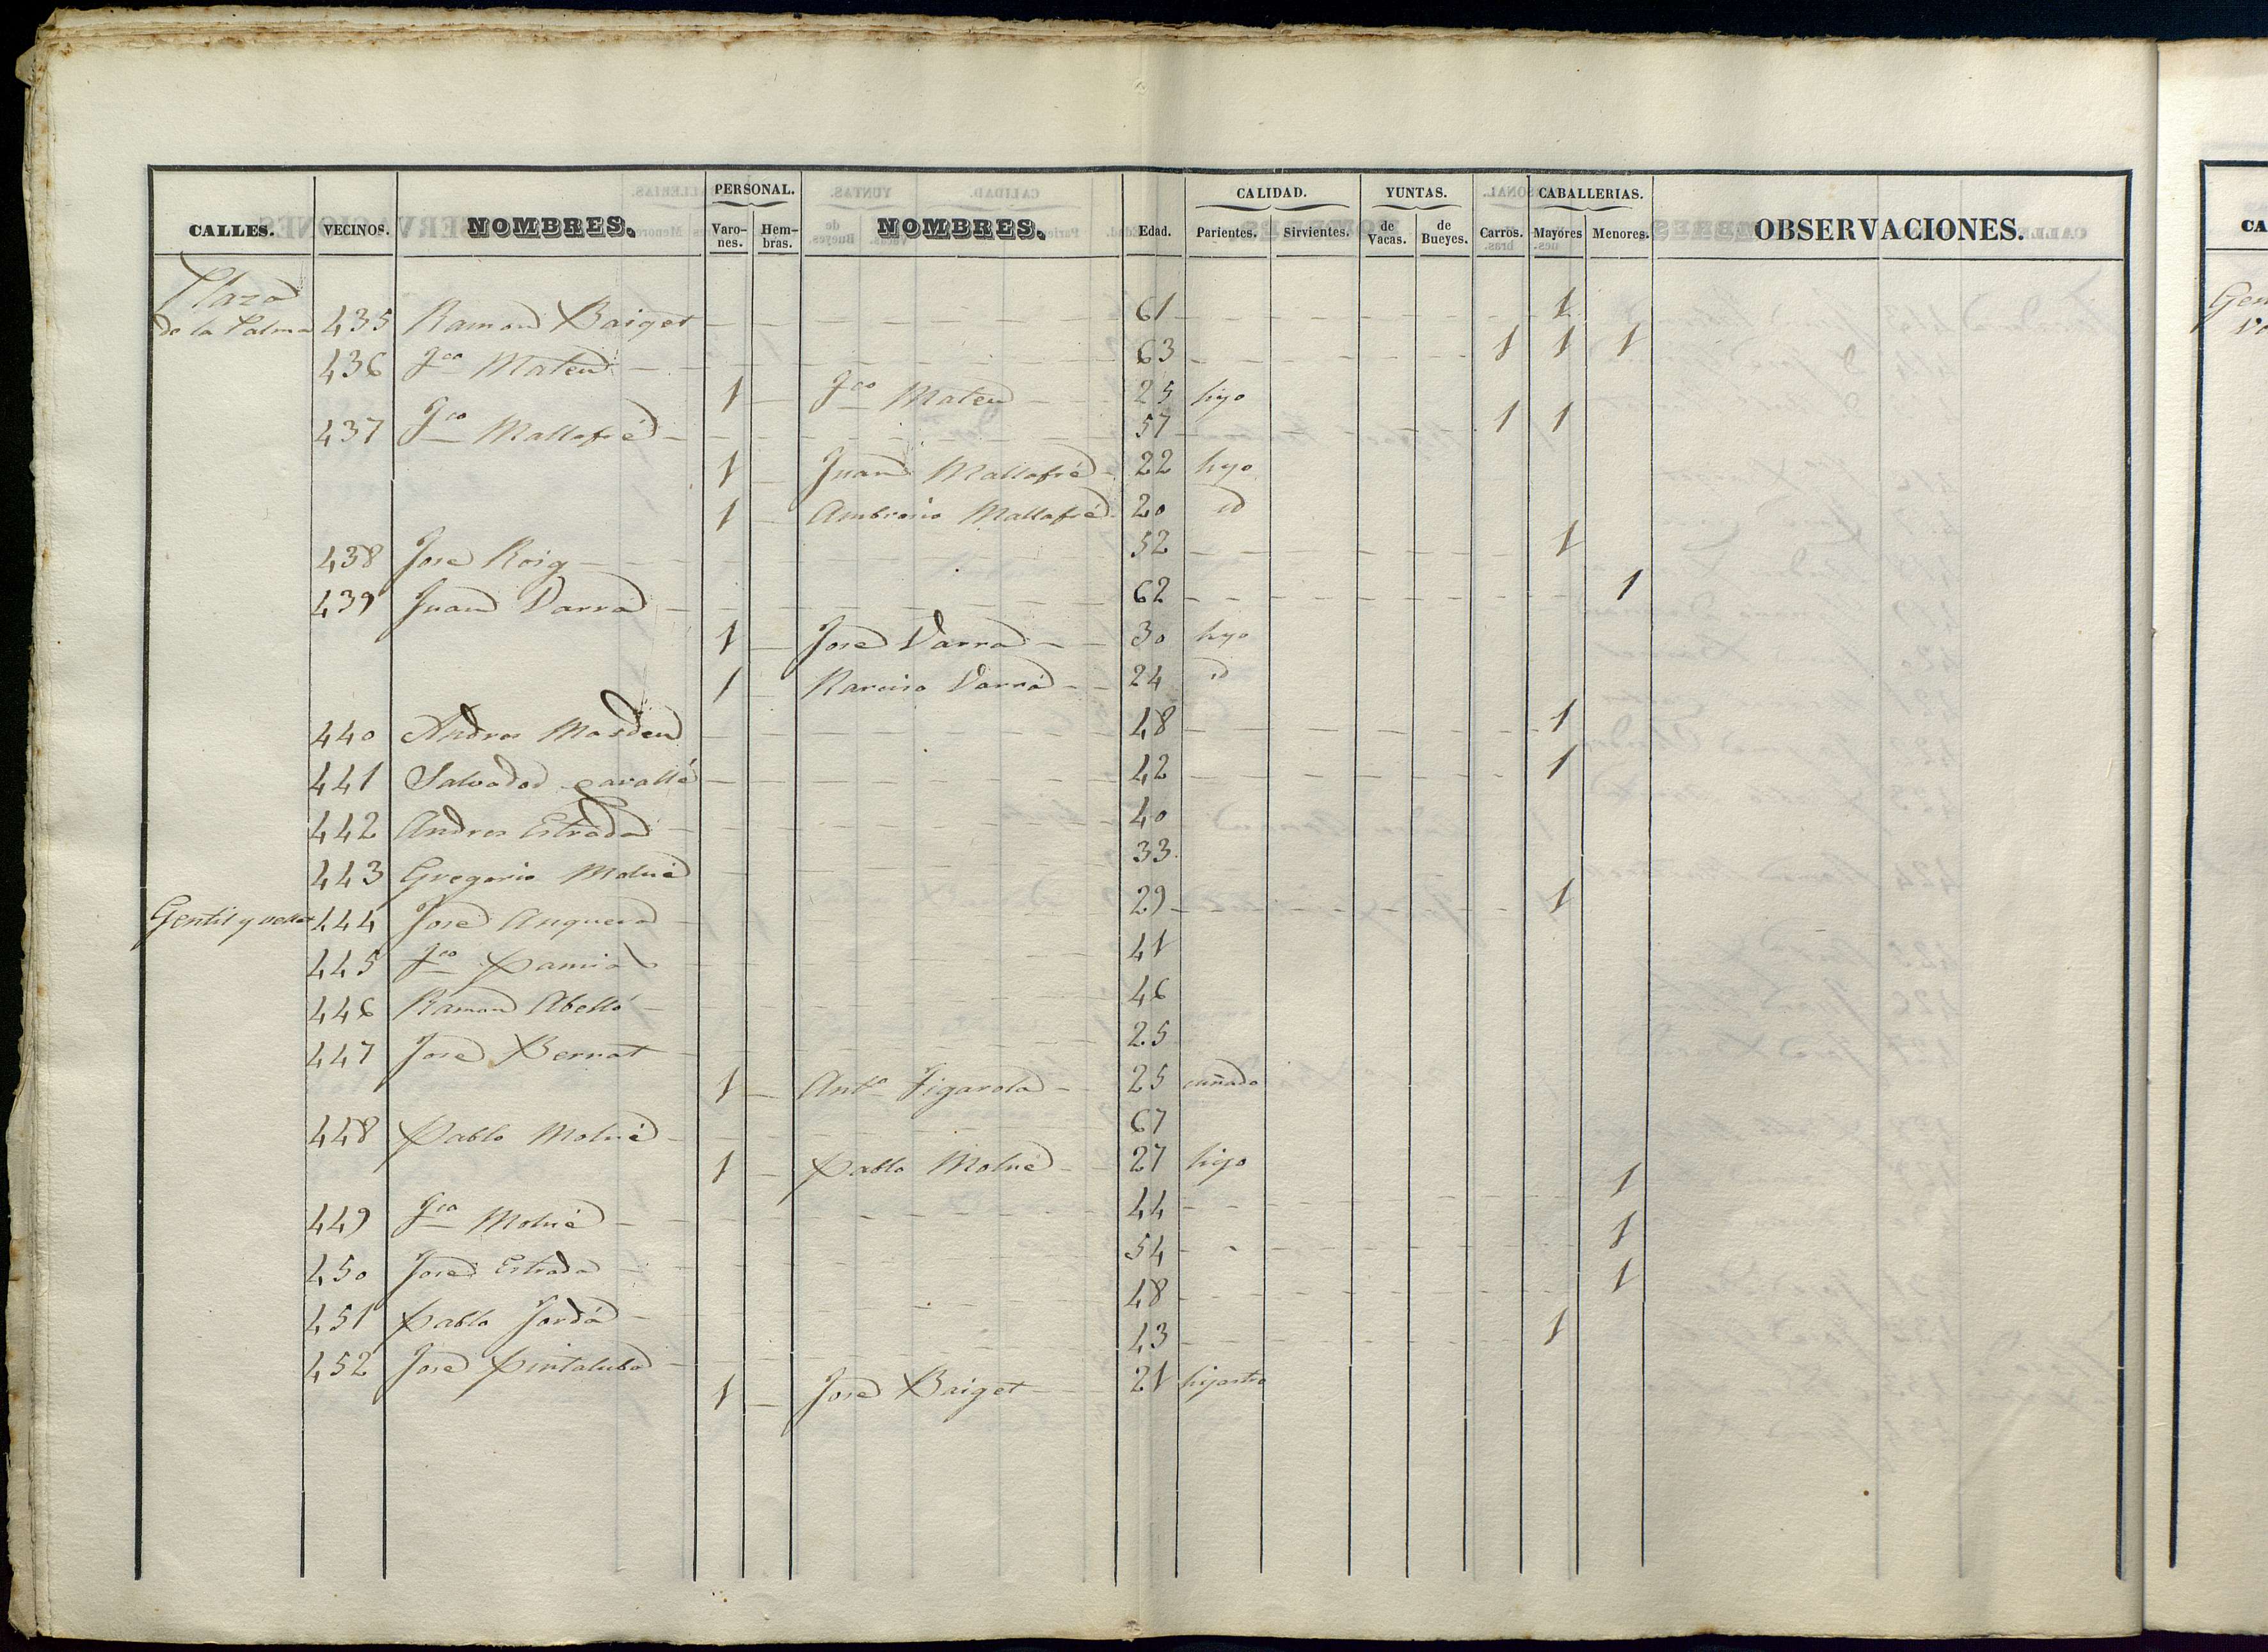 PERSONAL. CALIDAD. YUNTAS. CABALLERIAS.
CALLES. VECINOS. NOMBRES. Varo-nes. Hem-bras. NOMBRES. Edad. Parientes. Sirvientes. de Vacas. de Bueyes. Carros. Mayores Menores. OBSERVACIONES.
Plaza
de la Palma 435 Ramon Baiget 61 1
436 Fco Mateu 63 1 1 1
1 Fco Mateu 25 hijo
437 Fco Mallafré 57 1 1
1 Juan Mallafré 22 hijo
1 Ambrosio Mallafré 20 id
438 Jose Roig 52 1
439 Juan Darra 62 1
1 José Darra 30 hijo
1 Narciso Darrá 24 id
440 Andres Masdeu 48 1
441 Salvador Cavallé 42 1
442 Andres Estrada 40
443 Gregorio Molné 33
Gentil y 444 José Anguera 29 1
445 Fco 41
446 Ramon Abelló 46
447 José Bernat 25
1 Anto Figarola 25 cuñado
448 Pablo Molné 67
1 Pablo Molné 27 hijo
449 Fco Molné 44 1
450 José Estrada 54 1
451 Pablo Jordá 48 1
452 José Pintaluba 43 1
1 José Baiget 21 hijastro
CA
Gen